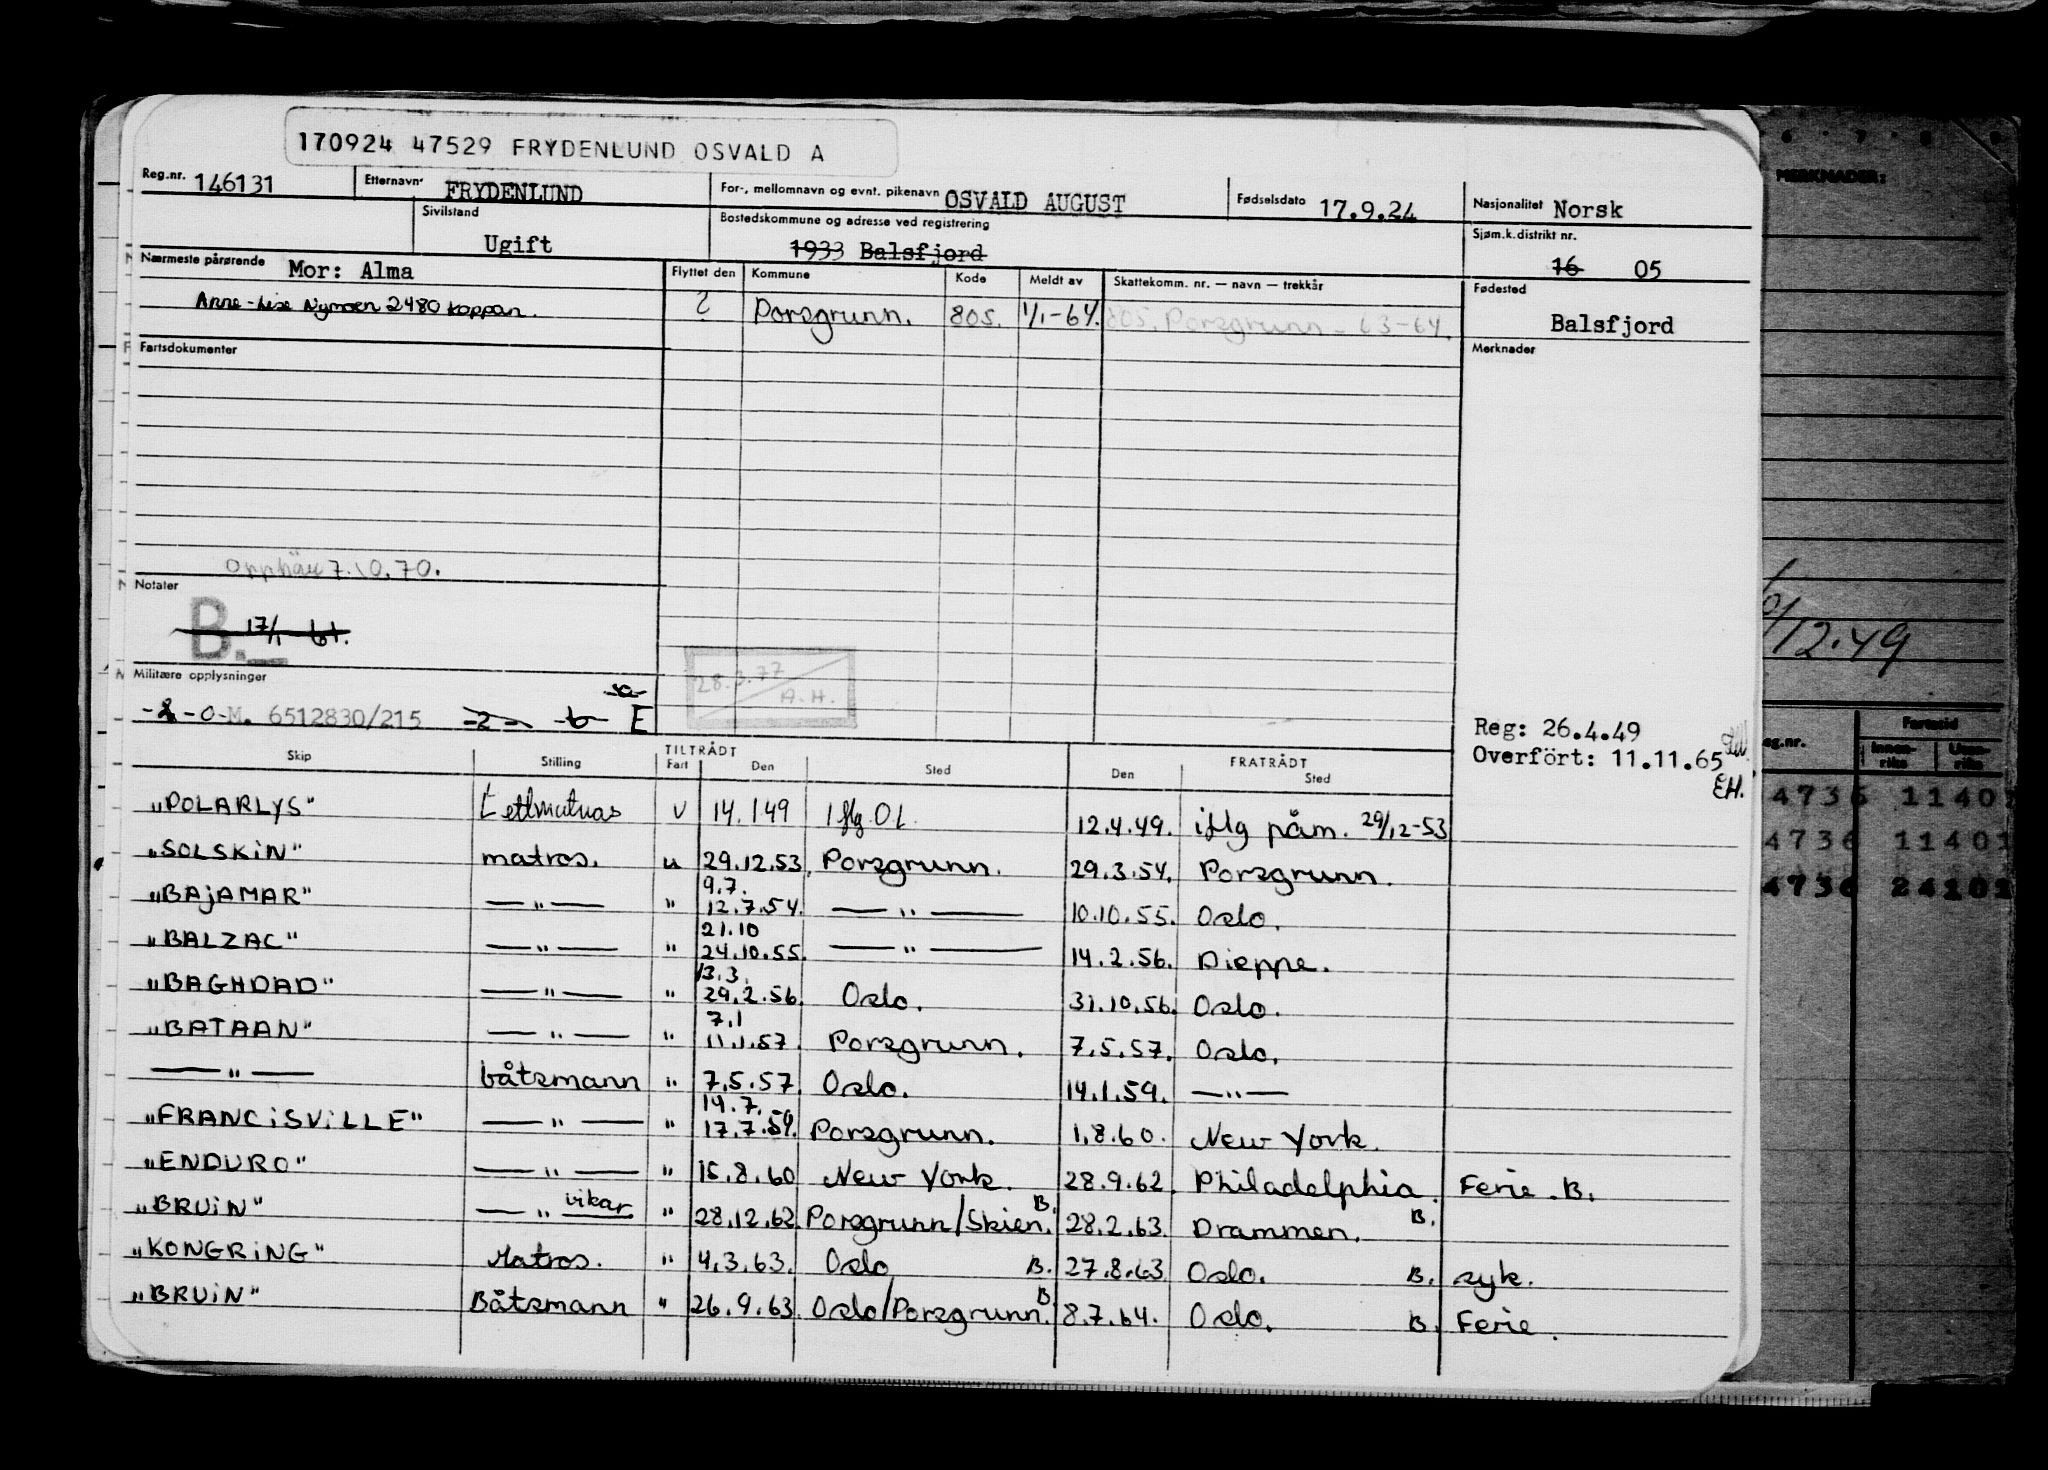 170924 47529 FRYDENLUND OSVALD A
Reg.nr. 146131 Etternavn FRYDENLUND For-, mellomnavn og evnt. pikenavn OSVALD AUGUST Fødselsdato 17.9.24 Nasjonalitet Norsk
Sivilstand Ugift Bostedskommune og adresse ved registrering 1933 Balsfjord Sjøm.k.distrikt nr. 16 05
Nærmeste pårørende Mor: Alma Flyttet den Kommune Kode Meldt av Skattekomm. nr. — navn — trekkår Fødested
Anne-Lise Nymoen 2480 Koppan. ? Porsgrunn. 805. 1/1-64. 805. Porsgrunn - 63-64. Balsfjord
Fartsdokumenter Merknader
7.10.70.
Notater
B. 17/1
Militære opplysninger 28.3.77 A.H.
-0-M. 6512830/215 -2- E
Reg: 26.4.49
Overfört: 11.11.65
EH.
Skip Stilling TILTRÅDT Fart Den Sted FRATRÅDT Den Sted
"POLARLYS" Lettmatros 14.149 12.4.49. påm. 29/12-53
"SOLSKIN" matros. u 29.12.53. Porsgrunn. 29.3.54. Porsgrunn.
"BAJAMAR" — " — " 9.7. 12.7.54. — " — 10.10.55. Oslo.
"BALZAC" — " — " 21.10 24.10.55. — " — 14.2.56. Dieppe.
"BAGHDAD" — " — " 13.3. 29.2.56. Oslo. 31.10.56. Oslo.
"BATAAN" — " — " 7.1 11.1.57. Porsgrunn. 7.5.57. Oslo.
— " — båtsmann " 7.5.57. Oslo. 14.1.59. — " —
"FRANCISVILLE" — " — " 14.7. 17.7.59. Porsgrunn. 1.8.60. New York.
"ENDURO" — " — " 15.8.60 New York. 28.9.62. Philadelphia. Ferie. B.
"BRUIN" — " — vikar " 28.12.62 Porsgrunn/Skien. B. 28.2.63. Drammen. B.
"KONGRING" Matros. " 4.3.63. Oslo B. 27.8.63 Oslo. B. syk.
"BRUIN" Båtsmann " 26.9.63. Oslo/Porsgrunn. B 8.7.64. Oslo. B. Ferie.
6 7 8 9
MERKNADER:
/12.49
Fartstid
Innen-riks Uten-riks
4736 1140
4736 11401
4736 24101